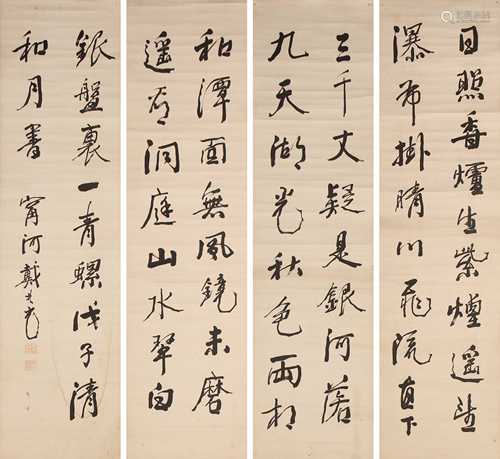 日照香爐生紫煙遥望
瀑布掛晴川飛流直下
三千丈疑是銀河落
九天湖光秋色兩相
和潭面無風鏡未磨
遥看洞庭山水翠白
銀盤裏一青螺戊子清
和月書 甯河戴